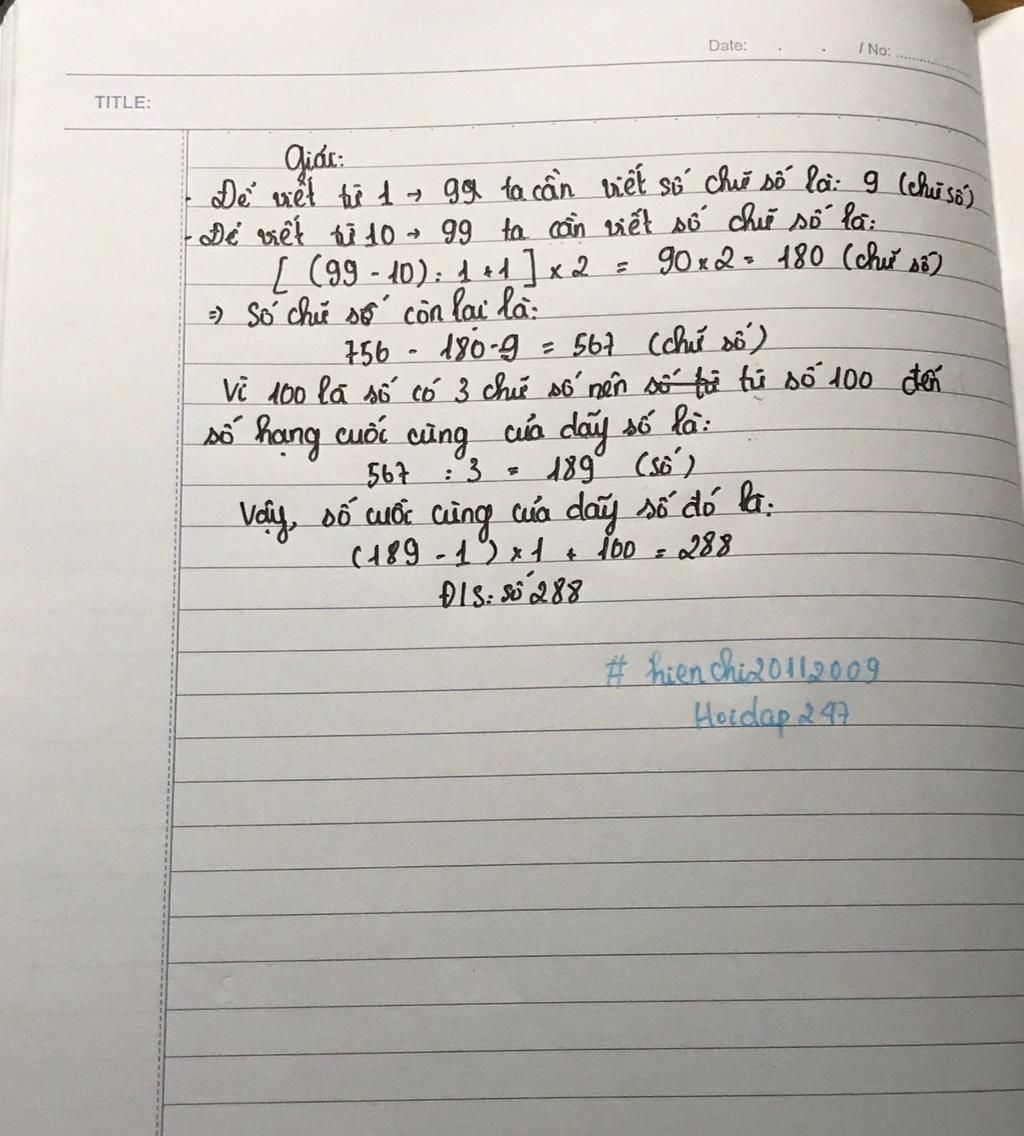 Date: . . / No: ..................
TITLE:
Giải:
- Để viết từ 1 → 99 ta cần viết số chữ số là: 9 (chữ số)
- Để viết từ 10 → 99 ta cần viết số chữ số là:
[ (99 - 10) : 1 + 1 ] x 2 = 90 x 2 = 180 (chữ số)
=> Số chữ số còn lại là:
756 - 180 - 9 = 567 (chữ số)
Vì 100 là số có 3 chữ số nên số từ từ số 100 đến
số hạng cuối cùng của dãy số là:
567 : 3 = 189 (số)
Vậy, số cuối cùng của dãy số đó là:
(189 - 1) x 1 + 100 = 288
Đ/S: số 288
# hienchi20112009
Hoidap247